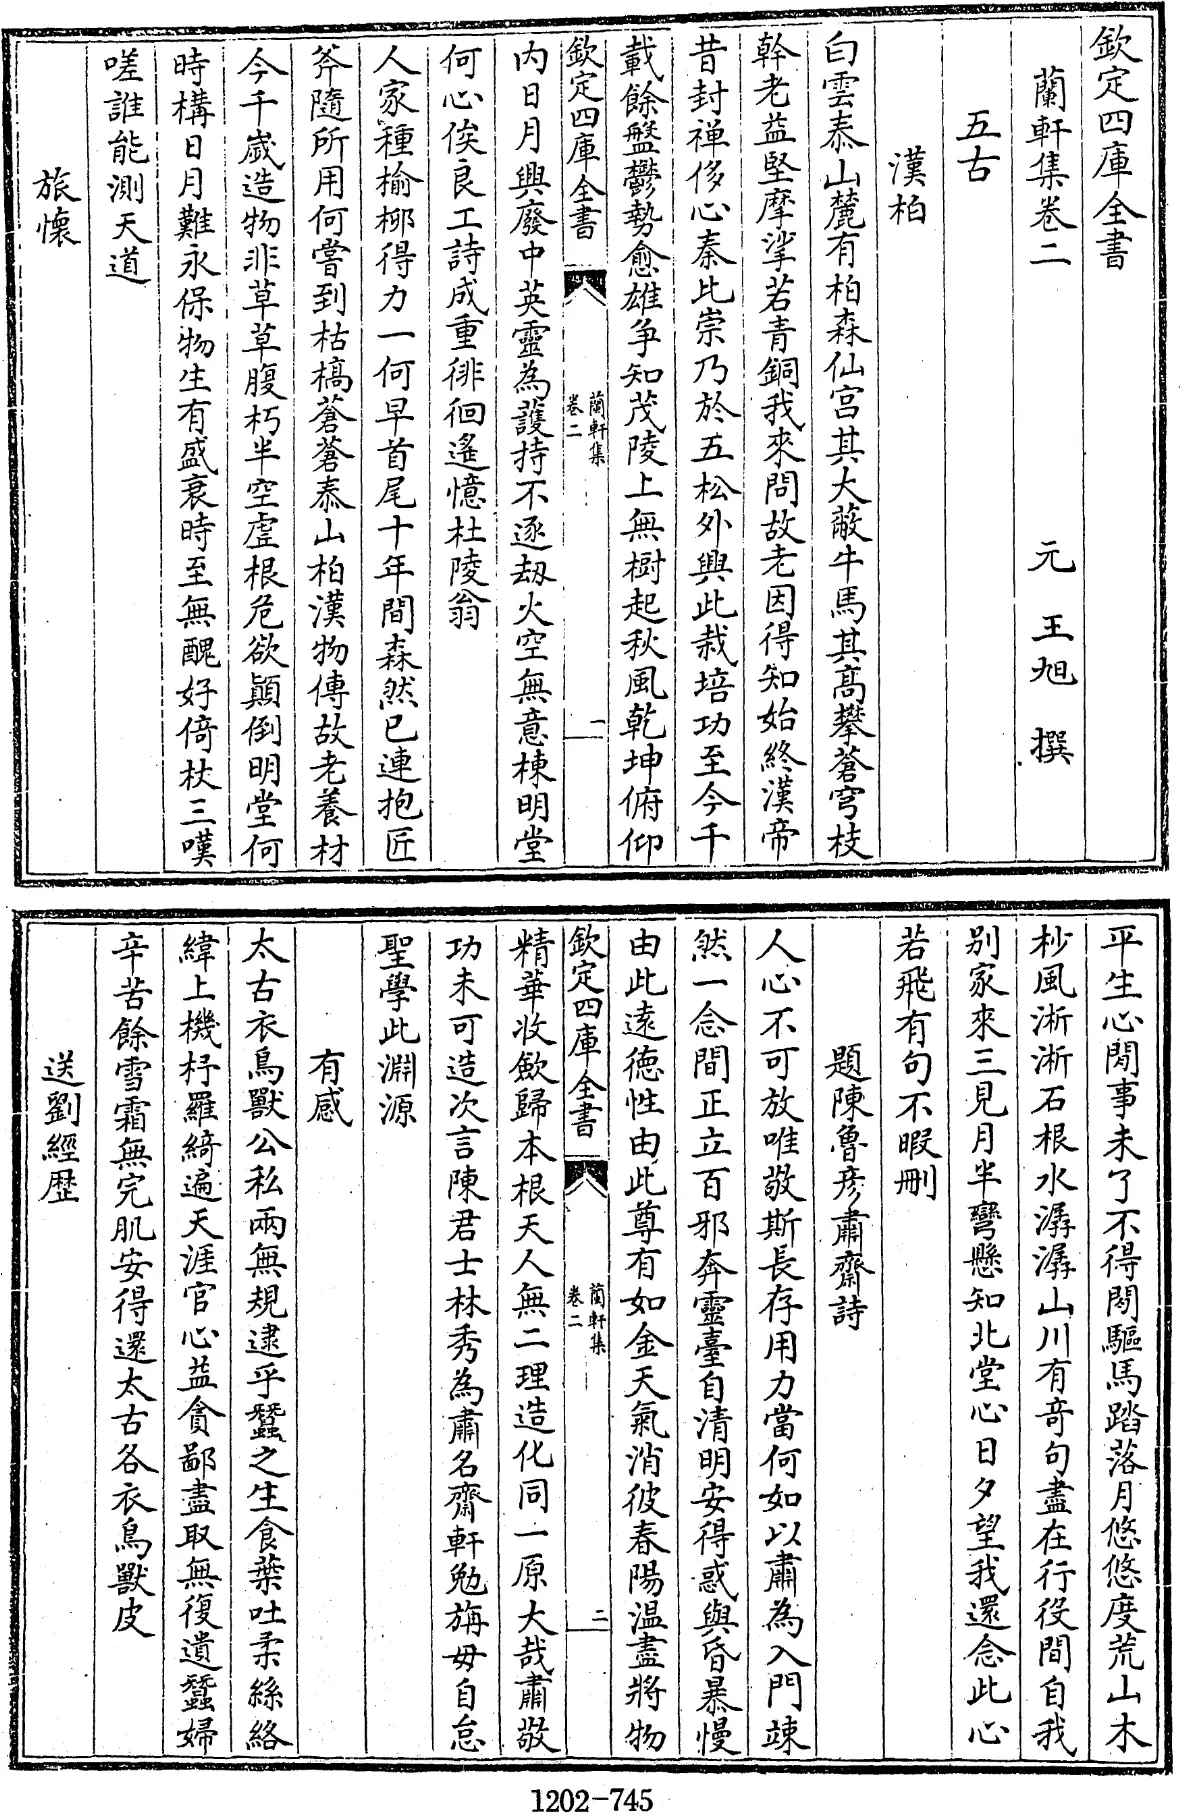 欽定四庫全書
蘭軒集卷二
元　王旭　撰
五古
漢柏
白雲泰山麓有柏森仙宫其大蔽牛馬其髙攀蒼穹枝
幹老益堅摩挲若青銅我來問故老因得知始終漢帝
昔封禅侈心秦此崇乃於五松外興此栽培功至今千
載餘盤鬱勢愈雄争知茂陵上無樹起秋風乾坤俯仰
欽定四庫全書
蘭軒集
卷二
一
内日月興廢中英靈為護持不逐刼火空無意棟明堂
何心俟良工詩成重徘徊遙憶杜陵翁
人家種榆栁得力一何早首尾十年間森然已連抱匠
斧隨所用何嘗到枯槁蒼蒼泰山柏漢物傳故老養材
今千嵗造物非草草腹朽半空虚根危欲顛倒明堂何
時構日月難永保物生有盛衰時至無醜好倚杖三嘆
嗟誰能測天道
旅懷
平生心閒事未了不得閒驅馬踏落月悠悠度荒山木
杪風淅淅石根水潺潺山川有竒句盡在行役間自我
别家來三見月半彎懸知北堂心日夕望我還念此心
若飛有句不暇刪
題陳魯彦肅齋詩
人心不可放唯敬斯長存用力當何如以肅為入門竦
然一念間正立百邪奔靈臺自清明安得惑與昏暴慢
由此遠徳性由此尊有如金天氣消彼春陽温盡將物
欽定四庫全書
蘭軒集
卷二
二
精華收歛歸本根天人無二理造化同一原大哉肅敬
功未可造次言陳君士林秀為肅名齋軒勉旃毋自怠
聖學此淵源
有感
太古衣鳥獸公私兩無規逮乎蠶之生食葉吐柔絲絡
緯上機杼羅綺遍天涯官心益貪鄙盡取無復遺蠶婦
辛苦餘雪霜無完肌安得還太古各衣鳥獸皮
送劉經歴
1202-745